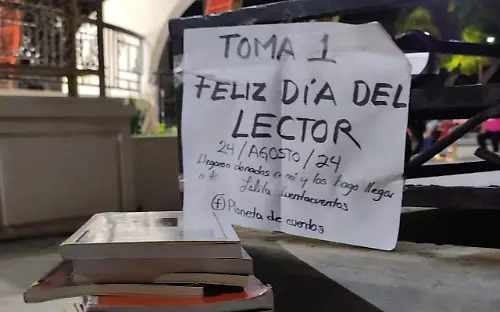 TOMA 1
FELIZ DÍA DEL
LECTOR
24/AGOSTO/24
Llegaron donados a mi y los hago llegar
a ti. Lolita cuentacuentos
f Planeta de cuentos